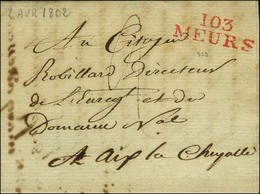 2 AVR 1802
103
MEURS
Au Citoyen
Robillard Directeur
de L'Enreg et du
Domaine Nal
A Aix la Chapelle